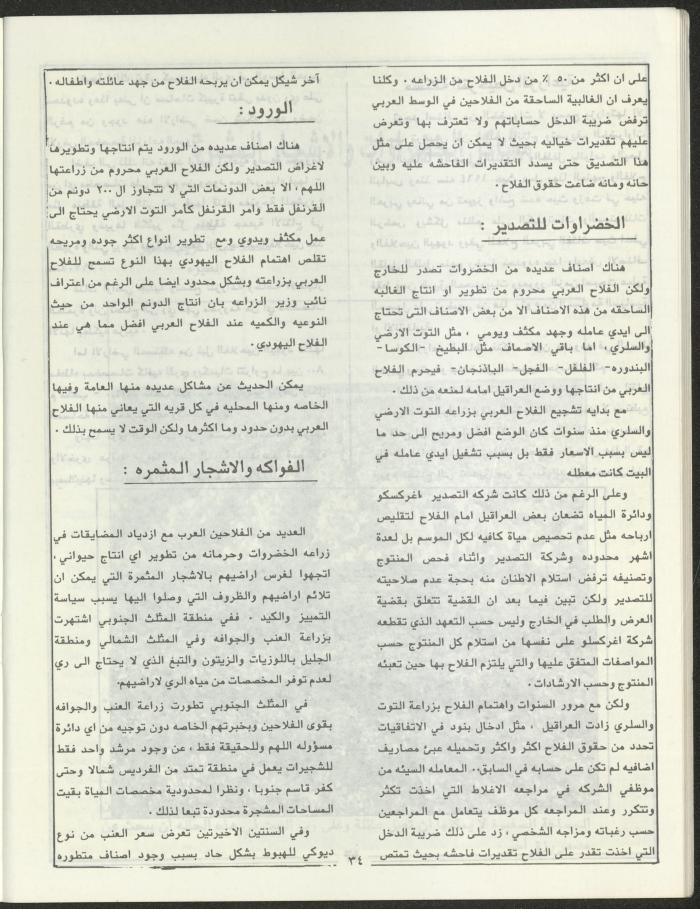 على ان اكثر من ٥٠ ٪ من دخل الفلاح من الزراعه . وكلنا
يعرف ان الغالبية الساحقة من الفلاحين في الوسط العربي
ترفض ضريبة الدخل حساباتهم ولا تعترف بها وتعرض
عليهم تقديرات خياليه بحيث لا يمكن ان يحصل على مثل
هذا التصديق حتى يسدد التقديرات الفاحشه عليه وبين
حانه ومانه ضاعت حقوق الفلاح .
الخضراوات للتصدير :
هناك اصناف عديده من الخضروات تصدر للخارج
ولكن الفلاح العربي محروم من تطوير او انتاج الغالبه
الساحقه من هذه الاصناف الا من بعض الاصناف التى تحتاج
الى ايدي عامله وجهد مكثف ويومي ، مثل التوت الارضي
والسلري، اما باقي الاصماف مثل البطيخ -الكوسا-
البندوره- الفلفل- الفجل- الباذنجان- فيحرم الفلاح
العربي من انتاجها ووضع العراقيل امامه لمنعه من ذلك .
مع بدايه تشجيع الفلاح العربي بزراعه التوت الارضي
والسلري منذ سنوات كان الوضع افضل ومريح الى حد ما
ليس بسبب الاسعار فقط بل بسبب تشغيل ايدي عامله في
البيت كانت معطله
وعلى الرغم من ذلك كانت شركه التصدير اغركسكو
ودائرة المياه تضعان بعض العراقيل امام الفلاح لتقليص
ارباحه مثل عدم تحصيص مياة كافيه لكل الموسم بل لعدة
اشهر محدوده وشركة التصدير واثناء فحص المنتوج
وتصنيفه ترفض استلام الاطنان منه بحجة عدم صلاحيته
للتصدير ولكن تبين فيما بعد ان القضية تتعلق بقضية
العرض والطلب في الخارج وليس حسب التعهد الذي تقطعه
شركة اغركسلو على نفسها من استلام كل المنتوج حسب
المواصفات المتفق عليها والتي يلتزم الفلاح بها حين تعبئه
المنتوج وحسب الارشادات .
ولكن مع مرور السنوات واهتمام الفلاح بزراعة التوت
والسلري زادت العراقيل ، مثل ادخال بنود في الاتفاقيات
تحدد من حقوق الفلاح اكثر واكثر وتحميله عبئ مصاريف
اضافيه لم تكن على حسابه في السابق.. المعامله السيئه من
موظفي الشركه في مراجعه الاغلاط التي اخذت تكثر
وتتكرر وعند المراجعه كل موظف يتعامل مع المراجعين
حسب رغباته ومزاجه الشخصي ، زد على ذلك ضريبة الدخل
التي اخذت تقدر على الفلاح تقديرات فاحشه بحيث تمتص
آخر شيكل يمكن ان يربحه الفلاح من جهد عائلته واطفاله .
الورود :
هناك اصناف عديده من الورود يتم انتاجها وتطويرها
لاغراض التصدير ولكن الفلاح العربي محروم من زراعتها
اللهم ، الا بعض الدونمات التي لا تتجاوز ال ٢٠٠ دونم من
القرنفل فقط وامر القرنفل كأمر التوت الارضي يحتاج الى
عمل مكثف ويدوي ومع تطوير انواع اكثر جوده ومريحه
تقلص اهتمام الفلاح اليهودي بهذا النوع تسمح للفلاح
العربي بزراعته وبشكل محدود ايضا على الرغم من اعتراف
نائب وزير الزراعه بان أنتاج الدونم الواحد من حيث
النوعيه والكميه عند الفلاح العربي افضل مما هي عند
الفلاح اليهودي .
يمكن الحديث عن مشاكل عديده منها العامة وفيها
الخاصه ومنها المحليه في كل قريه التي يعاني منها الفلاح
العربي بدون حدود وما اكثرها ولكن الوقت لا يسمح بذلك .
الفواكه والاشجار المثمره :
العديد من الفلاحين العرب مع ازدياد المضايقات في
زراعه الخضروات وحرمانه من تطوير اي انتاج حيواني ،
اتجهوا لغرس اراضيهم بالاشجار المثمرة التي يمكن ان
تلائم اراضيهم والظروف التي وصلوا اليها يسبب سياسة
التمييز والكيد . ففي منطقة المثلث الجنوبي اشتهرت
بزراعة العنب والجوافه وفي المثلث الشمالي ومنطقة
الجليل باللوزيات والزيتون والتبغ الذي لا يحتاج الى ري
لعدم توفر المخصصات من مياه الري لاراضيهم.
في المثلث الجنوبي تطورت زراعة العنب والجوافه
بقوى الفلاحين وبخبرتهم الخاصه دون توجيه من اي دائرة
مسؤوله اللهم وللحقيقة فقط ، عن وجود مرشد واحد فقط
للشجيرات يعمل في منطقة تمتد من الفرديس شمالا وحتى
كفر قاسم جنوبا ، ونظرا لمحدودية مخصصات المياة بقيت
المساحات المشجرة محدودة تبعا لذلك .
وفي السنتين الاخيرتين تعرض سعر العنب من نوع
ديوكي للهبوط بشكل حاد بسبب وجود اصناف متطوره
٣٤